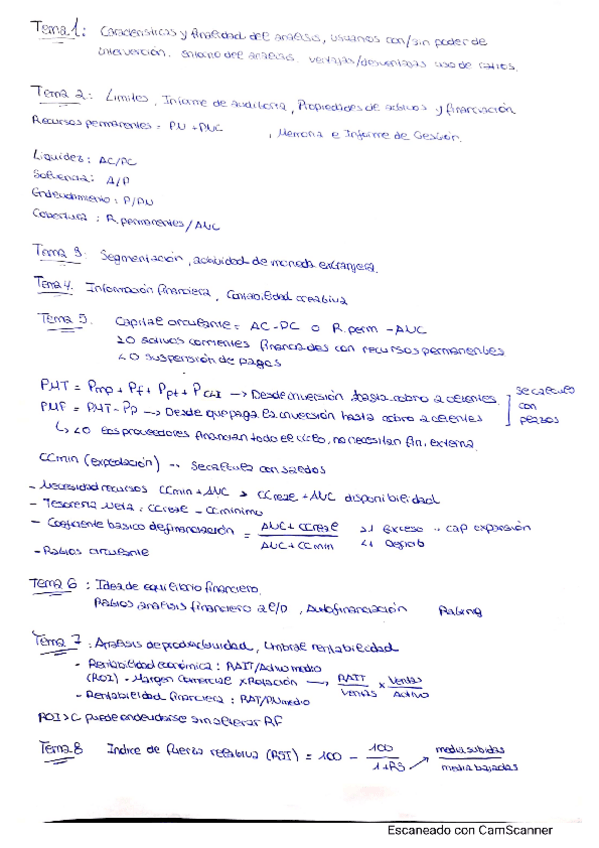 Tema 1: Características y finalidad del análisis, usuarios con/sin poder de
intervención. entorno del análisis. ventajas/desventajas uso de ratios.
Tema 2: Límites, Informe de auditoría, Propiedades de activos y financiación
Recursos permanentes = PN + PNC , Memoria e Informe de Gestión.
Liquidez: AC/PC
Solvencia: A/P
Endeudamiento: P/PN
Cobertura: R.permanentes/ANC
Tema 3: Segmentación, actividad de moneda extranjera.
Tema 4. Información financiera, Contabilidad creativa
Tema 5. Capital circulante = AC - PC o R.perm - ANC
>0 activos corrientes financiados con recursos permanentes
<0 suspensión de pagos
PMT = Pmp + Pf + Ppt + Pcli → Desde inversión hasta cobro a clientes
PMF = PMT - Pp → Desde que paga la inversión hasta cobro a clientes
se calculan
con
plazos
↳ <0 los proveedores financian todo el ciclo, no necesitan fin. externa.
CCmin (explotación) → Se calcula con saldos
- Necesidad recursos CCmin + ANC > CCreal + ANC disponibilidad
- Tesorería Neta: CCreal - CCmínimo
- Coeficiente básico de financiación = ANC + CCreal / ANC + CCmin >1 Exceso → cap expansión
<1 Déficit
- Ratios circulante
Tema 6: Idea de equilibrio financiero.
Ratios análisis financiero a c/p, Autofinanciación Rating
Tema 7: Análisis de productividad, Umbral rentabilidad
- Rentabilidad económica: RAIT/Activo medio
(ROI) - Margen Comercial x Rotación → RAIT/Ventas x Ventas/Activo
- Rentabilidad financiera: RAT/PN medio
ROI > C puede endeudarse sin alterar RF
Tema 8 Índice de fuerza relativa (RSI) = 100 - 100 / 1+RS → media subidas / media bajadas
Escaneado con CamScanner